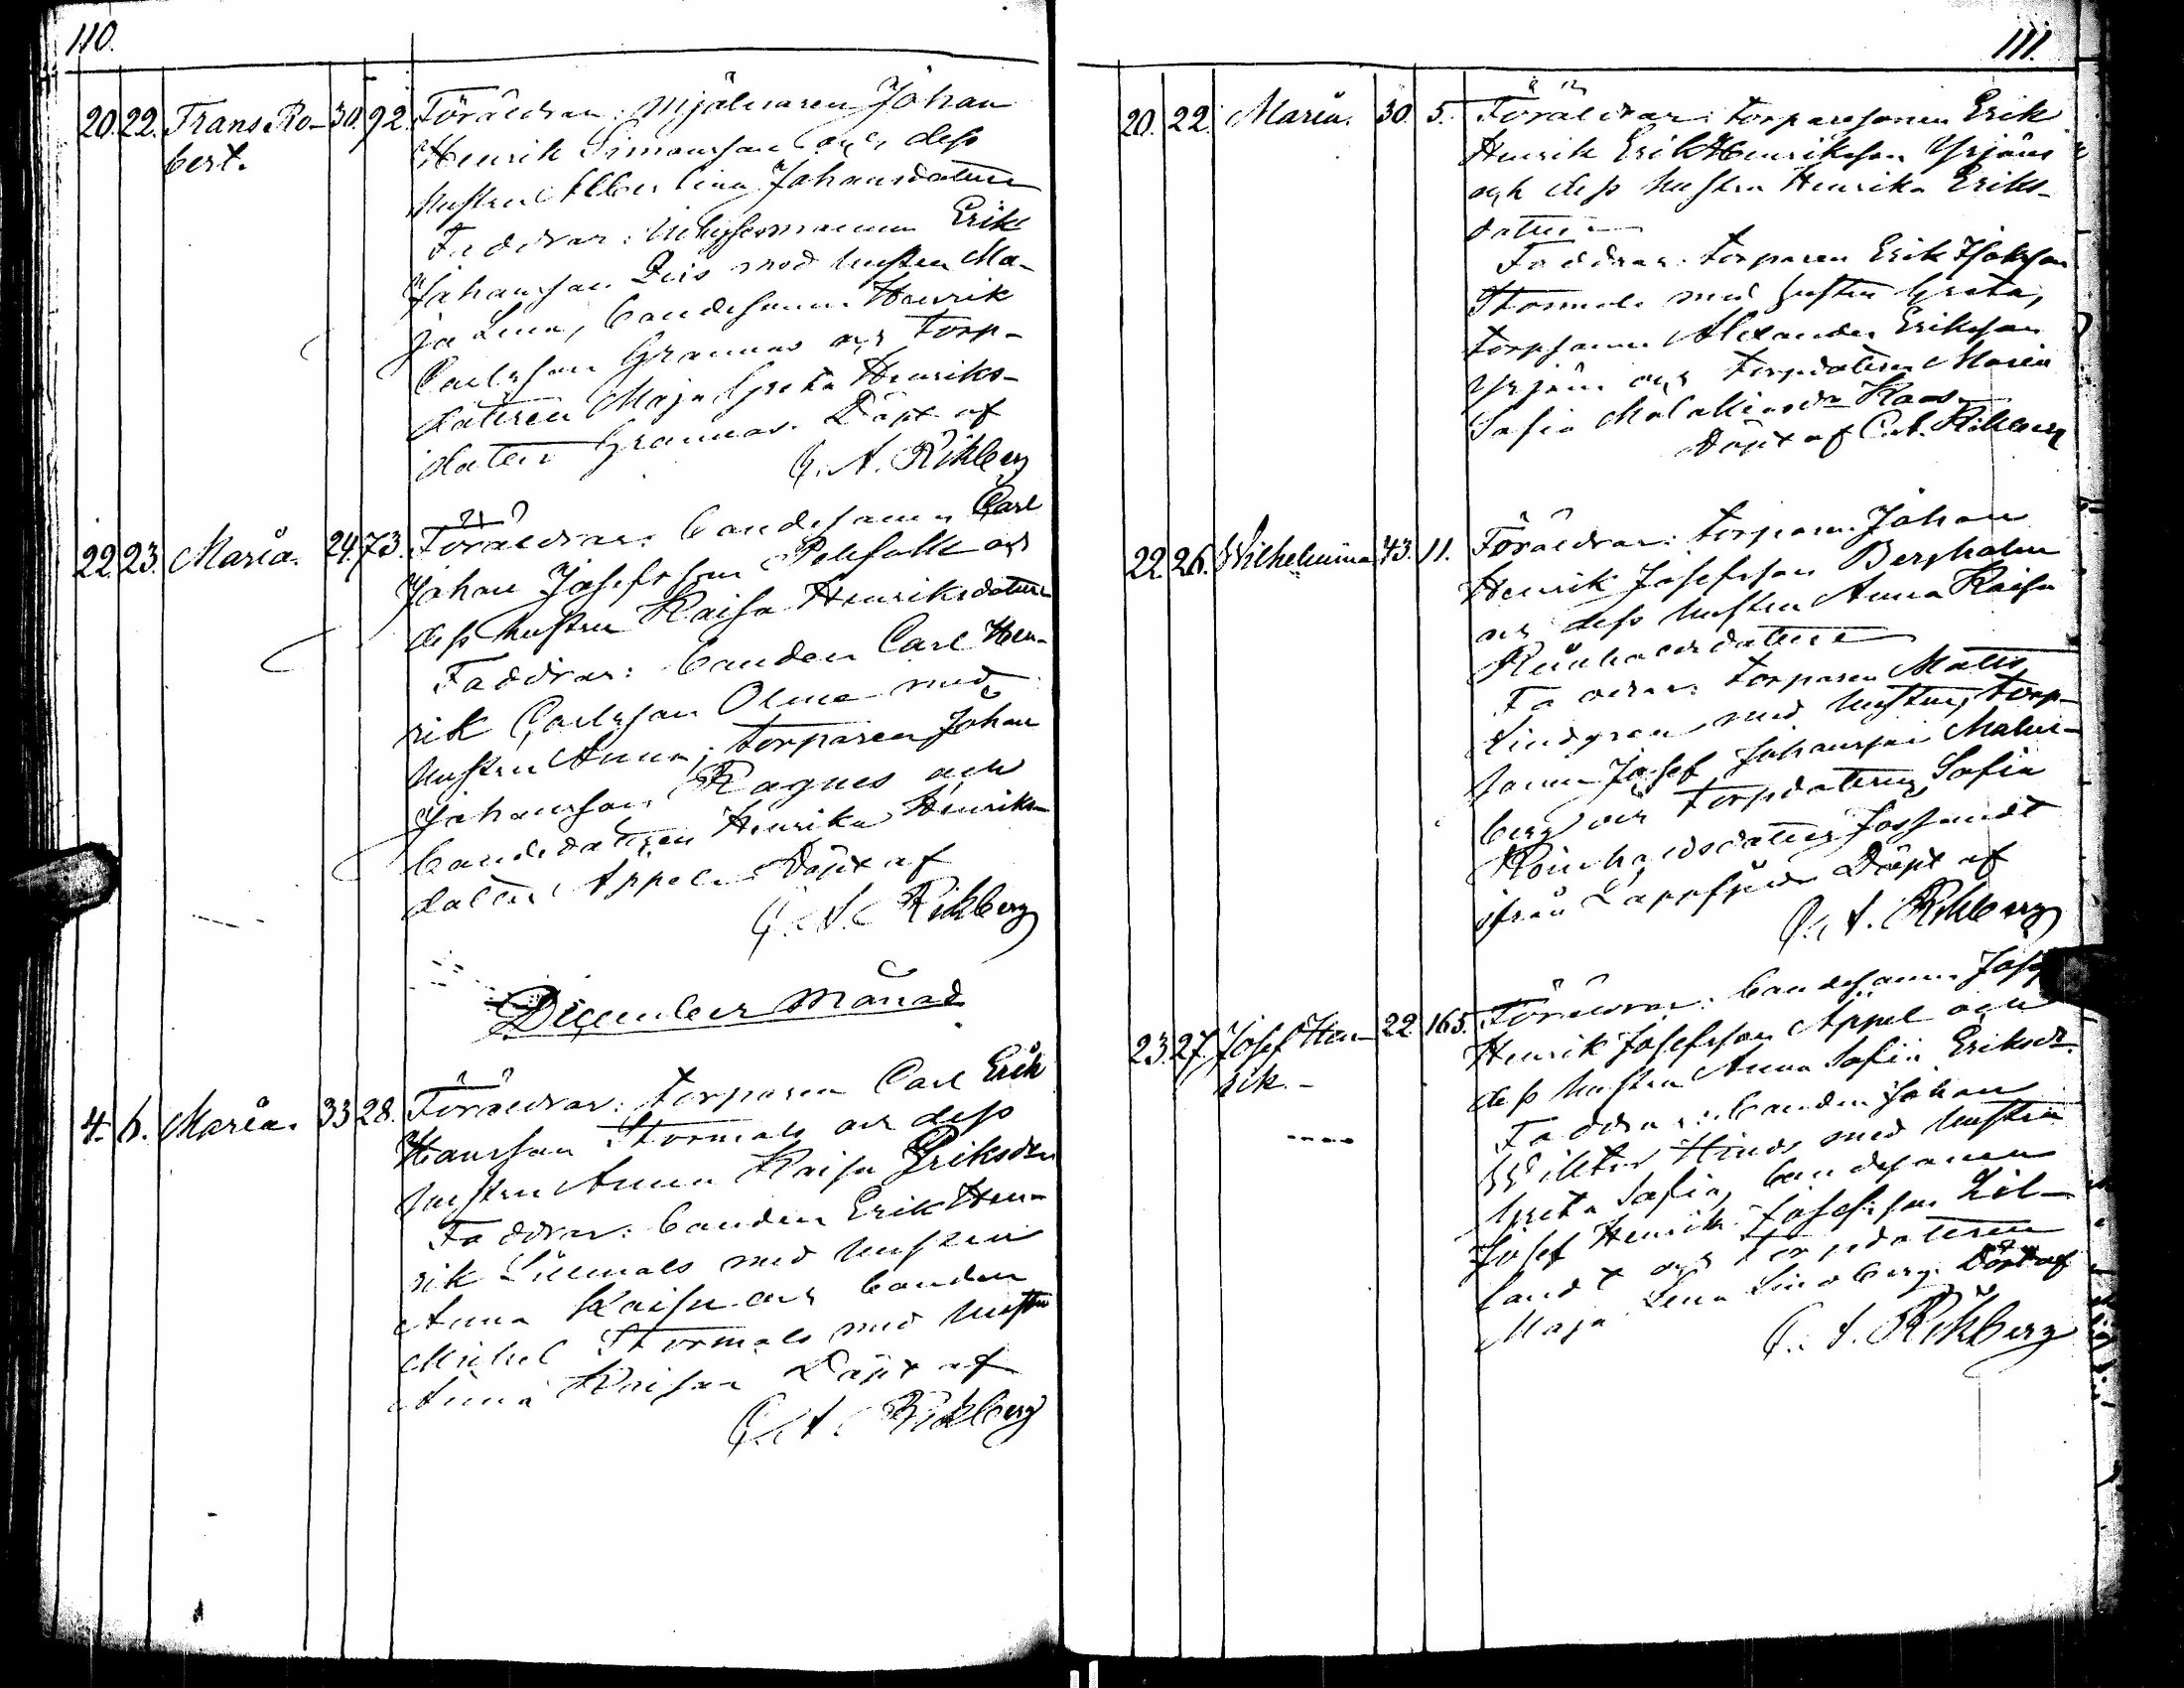 110.
20. 22. Frans Ro- 30. 92. Föräldrar: Mjölnaren Johan
bert. Henrik Simonsson och dess
hustru Albertina Johansdotter
Faddrar: Erik
Johansson med hustru Ma-
ja Lena, bondesonen Henrik
Carlsson Grannas och torp-
dottren Maja Greta Henriks-
dotter Grannas. Döpt af
C. A. Rikberg
22. 23. Maria. 24. 73. Föräldrar: bondesonen Carl
Johan Josefsson och
dess hustru Kaisa Henriksdotter
Faddrar: bonden Carl Hen-
rik Carlsson med
hustru Anna, torparen Johan
Johansson Ragnes och
bondedottren Henrika Henriks-
dotter Appel. Döpt af
C. A. Rikberg
December Månad
4. 6. Maria. 33 28. Föräldrar: torparen Carl Erik
Hansson Stormals och dess
hustru Anna Kaisa Eriksdr
Faddrar: bonden Erik Hen-
rik Lillmals med hustru
Anna Kaisa och bonden
Michel Stormals med hustru
Anna Kaisa Döpt af
C. A. Rikberg
111.
20. 22. Maria. 30. 5. Föräldrar: torparesonen Erik
Henrik Erik Henriksson Yrjäns
och dess hustru Henrika Eriks-
dotter
Faddrar: torparen Erik
Stormals med hustru Greta,
torpsonen Alexander Eriksson
Yrjäns och torpdottren Maria
Sofia
Döpt af C. A. Rikberg
22. 26. Wilhelmina 43. 11. Föräldrar: torparen Johan
Henrik Josefsson Bergholm
och dess hustru Anna Kaisa
Reinholdsdotter
Faddrar: torparen Matts
Lindgren med hustru, torp-
sonen Josef Johansson Malm-
berg och torpdottren Sofia
Reinholdsdotter
ifrån Lappfjärd Döpt af
C. A. Rikberg
23. 27. Josef Hen- 22 165. Föräldrar: bondesonen Josef
rik. Henrik Josefsson Appel och
dess hustru Anna Sofia Eriksdr.
Faddrar: bonden Johan
Wiktor Hinds med hustru
Greta Sofia, bondesonen
Josef Henrik Josefsson Lil-
landt och torpdottren
Maja Lena Lindberg. Döpt af
C. A. Rikberg